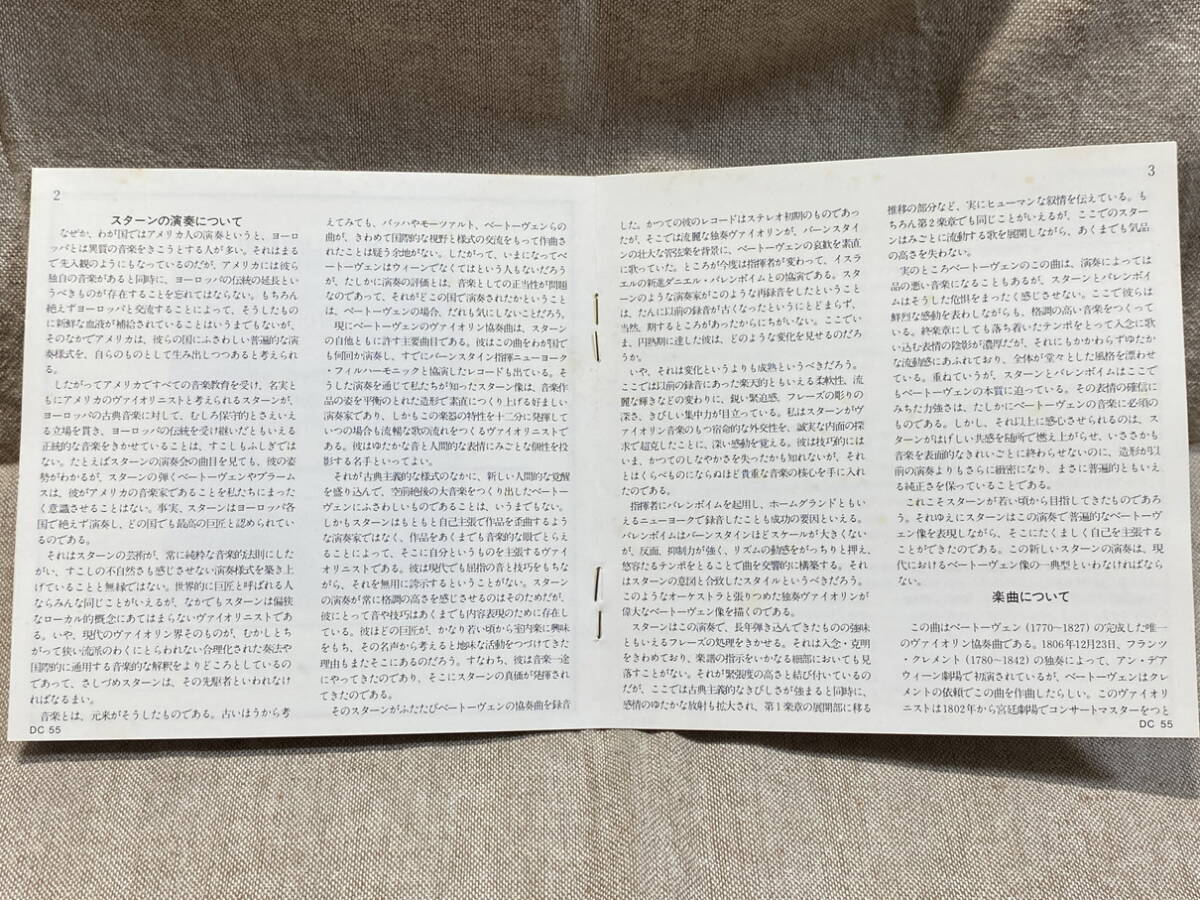 2
スターンの演奏について
なぜか、わが国ではアメリカ人の演奏というと、ヨーロ
ッパとは異質の音楽をきこうとする人が多い。それはまる
で先入観のようにもなっているのだが、アメリカには彼ら
独自の音楽があると同時に、ヨーロッパの伝統の延長とい
うべきものが存在することを忘れてはならない。もちろん
絶えずヨーロッパと交流することによって、そうしたもの
に新鮮な血液が補給されていることはいうまでもないが、
そのなかでアメリカは、彼らの国にふさわしい普遍的な演
奏様式を、自らのものとして生み出しつつあると考えられ
る。
したがってアメリカですべての音楽教育を受け、名実と
もにアメリカのヴァイオリニストと考えられるスターンが、
ヨーロッパの古典音楽に対して、むしろ保守的とさえいえ
る立場を貫き、ヨーロッパの伝統を受け継いだともいえる
正統的な音楽をきかせていることは、すこしもふしぎでは
ない。たとえばスターンの演奏会の曲目を見ても、彼の姿
勢がわかるが、スターンの弾くベートーヴェンやブラーム
スは、彼がアメリカの音楽家であることを私たちにまった
く意識させることはない。事実、スターンはヨーロッパ各
国で絶えず演奏し、どの国でも最高の巨匠と認められてい
るのである。
それはスターンの芸術が、常に純粋な音楽的法則にした
がい、すこしの不自然さも感じさせない演奏様式を築き上
げていることと無縁ではない。世界的に巨匠と呼ばれる人
ならみんな同じことがいえるが、なかでもスターンは偏狭
なローカル的概念にあてはまらないヴァイオリニストであ
る。いや、現代のヴァイオリン界そのものが、むかしとち
がって狭い流派のわくにとらわれない合理化された奏法や
国際的に通用する音楽的な解釈をよりどころとしているの
であって、さしづめスターンは、その先駆者といわれなけ
ればなるまい。
音楽とは、元来がそうしたものである。古いほうから考
えてみても、バッハやモーツァルト、ベートーヴェンらの
曲が、きわめて国際的な視野と様式の交流をもって作曲さ
れたことは疑う余地がない。したがって、いまになってベ
ートーヴェンはウィーンでなくてはという人もないだろう
が、たしかに演奏の評価とは、音楽としての正当性が問題
なのであって、それがどこの国で演奏されたかということ
は、ベートーヴェンの場合、だれも気にしないことだろう。
現にベートーヴェンのヴァイオリン協奏曲は、スターン
の自他ともに許す主要曲目である。彼はこの曲をわが国で
も何回か演奏し、すでにバーンスタイン指揮ニューヨーク
・フィルハーモニックと協演したレコードも出ている。そ
うした演奏を通じて私たちが知ったスターン像は、音楽作
品の姿を平衡のとれた造形で素直につくり上げる好ましい
演奏家であり、しかもこの楽器の特性を十二分に発揮して
いつの場合も流暢な歌の流れをつくるヴァイオリニストで
ある。彼はゆたかな音と人間的な表情にみごとな個性を投
影する名手といってよい。
それが古典主義的な様式のなかに、新しい人間的な覚醒
を盛り込んで、空前絶後の大音楽をつくり出したベートー
ヴェンにふさわしいものであることは、いうまでもない。
しかもスターンはもともと自己主張で作品を歪曲するよう
な演奏家ではなく、作品をあくまでも音楽的な眼でとらえ
ることによって、そこに自分というものを主張するヴァイ
オリニストである。彼は現代でも屈指の音と技巧をもちな
がら、それを無用に誇示するということがない。スターン
の演奏が常に格調の高さを感じさせるのはそのためだが、
彼にとって音や技巧はあくまでも内容表現のために存在し
ている。彼ほどの巨匠が、かなり若い頃から室内楽に興味
をもち、その名声から考えると地味な活動をつづけてきた
理由もまたそこにあるのだろう。すなわち、彼は音楽一途
にやってきたのであり、そこにスターンの真価が発揮され
てきたのである。
そのスターンがふたたびベートーヴェンの協奏曲を録音
DC 55
3
した。かつての彼のレコードはステレオ初期のものであっ
たが、そこでは流麗な独奏ヴァイオリンが、バーンスタイ
ンの壮大な管弦楽を背景に、ベートーヴェンの哀歓を素直
に歌っていた。ところが今度は指揮者が変わって、イスラ
エルの新進ダニエル・バレンボイムとの協演である。スタ
ーンのような演奏家がこのような再録音をしたということ
は、たんに以前の録音が古くなったというにとどまらず、
当然、期するところがあったからにちがいない。ここでい
ま、円熟期に達した彼は、どのような変化を見せるのだろ
うか。
いや、それは変化というよりも成熟というべきだろう。
ここでは以前の録音にあった楽天的ともいえる柔軟性、流
麗な輝きなどの変わりに、鋭い緊迫感、フレーズの彫りの
深さ、きびしい集中力が目立っている。私はスターンがヴ
ァイオリン音楽のもつ宿命的な外交性を、誠実な内面の探
求で超克したことに、深い感動を覚える。彼は技巧的には
いま、かつてのしなやかさを失ったかも知れないが、それ
とはくらべものにならぬほど貴重な音楽の核心を手に入れ
たのである。
指揮者にバレンボイムを起用し、ホームグランドともい
えるニューヨークで録音したことも成功の要因といえる。
バレンボイムはバーンスタインほどスケールが大きくない
が、反面、抑制力が強く、リズムの動感をがっちりと押え、
悠容たるテンポをとることで曲を交響的に構築する。それ
はスターンの意図と合致したスタイルというべきだろう。
このようなオーケストラと張りつめた独奏ヴァイオリンが
偉大なベートーヴェン像を描くのである。
スターンはこの演奏で、長年弾き込んできたものの強味
ともいえるフレーズの処理をきかせる。それは入念・克明
をきわめており、楽譜の指示をいかなる細部においても見
落すことがない。それが緊張度の高さと結び付いているの
だが、ここでは古典主義的なきびしさが強まると同時に、
感情のゆたかな放射も拡大され、第1楽章の展開部に移る
推移の部分など、実にヒューマンな叙情を伝えている。も
ちろん第2楽章でも同じことがいえるが、ここでのスター
ンはみごとに流動する歌を展開しながら、あくまでも気品
の高さを失わない。
実のところベートーヴェンのこの曲は、演奏によっては
品の悪い音楽になることもあるが、スターンとバレンボイ
ムはそうした危惧をまったく感じさせない。ここで彼らは
鮮烈な感動を表わしながらも、格調の高い音楽をつくって
いる。終楽章にしても落ち着いたテンポをとって入念に歌
い込む表情の陰影が濃厚だが、それにもかかわらずゆたか
な流動感にあふれており、全体が堂々とした風格を漂わせ
ている。重ねていうが、スターンとバレンボイムはここで
もベートーヴェンの本質に迫っている。その表情の確信に
みちた力強さは、たしかにベートーヴェンの音楽に必須の
ものである。しかし、それ以上に感心させられるのは、ス
ターンがはげしい共感を随所で燃え上がらせ、いささかも
音楽を表面的なきれいごとに終わらせないのに、造形が以
前の演奏よりもさらに緻密になり、まさに普遍的ともいえ
る純正さを保っていることである。
これこそスターンが若い頃から目指してきたものであろ
う。それゆえにスターンはこの演奏で普遍的なベートーヴ
ェン像を表現しながら、そこにたくましく自己を主張する
ことができたのである。この新しいスターンの演奏は、現
代におけるベートーヴェン像の一典型といわなければなら
ない。
楽曲について
この曲はベートーヴェン（1770〜1827）の完成した唯一
のヴァイオリン協奏曲である。1806年12月23日、フランツ
・クレメント（1780〜1842）の独奏によって、アン・デア
ウィーン劇場で初演されているが、ベートーヴェンはクレ
メントの依頼でこの曲を作曲したらしい。このヴァイオリ
ニストは1802年から宮廷劇場でコンサートマスターをつと
DC 55